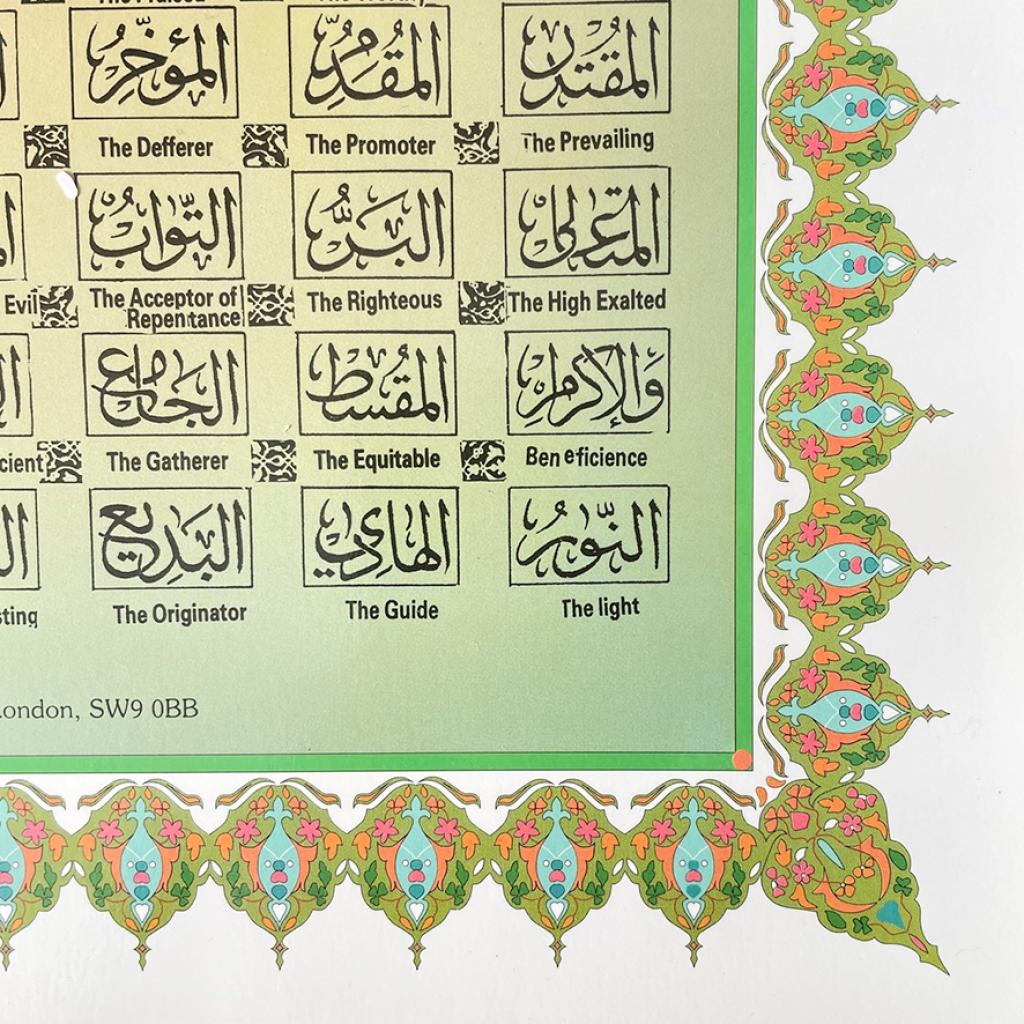 المقتدر المقدّم المؤخّر
The Defferer The Promoter The Prevailing
المتعالى البَرُّ التّوّابُ
Evil The Acceptor of Repentance The Righteous The High Exalted
وَالإكرام المقسط الجامع
The Gatherer The Equitable Beneficience
النّورُ الهادي البَدِيع
The Originator The Guide The light
London, SW9 0BB